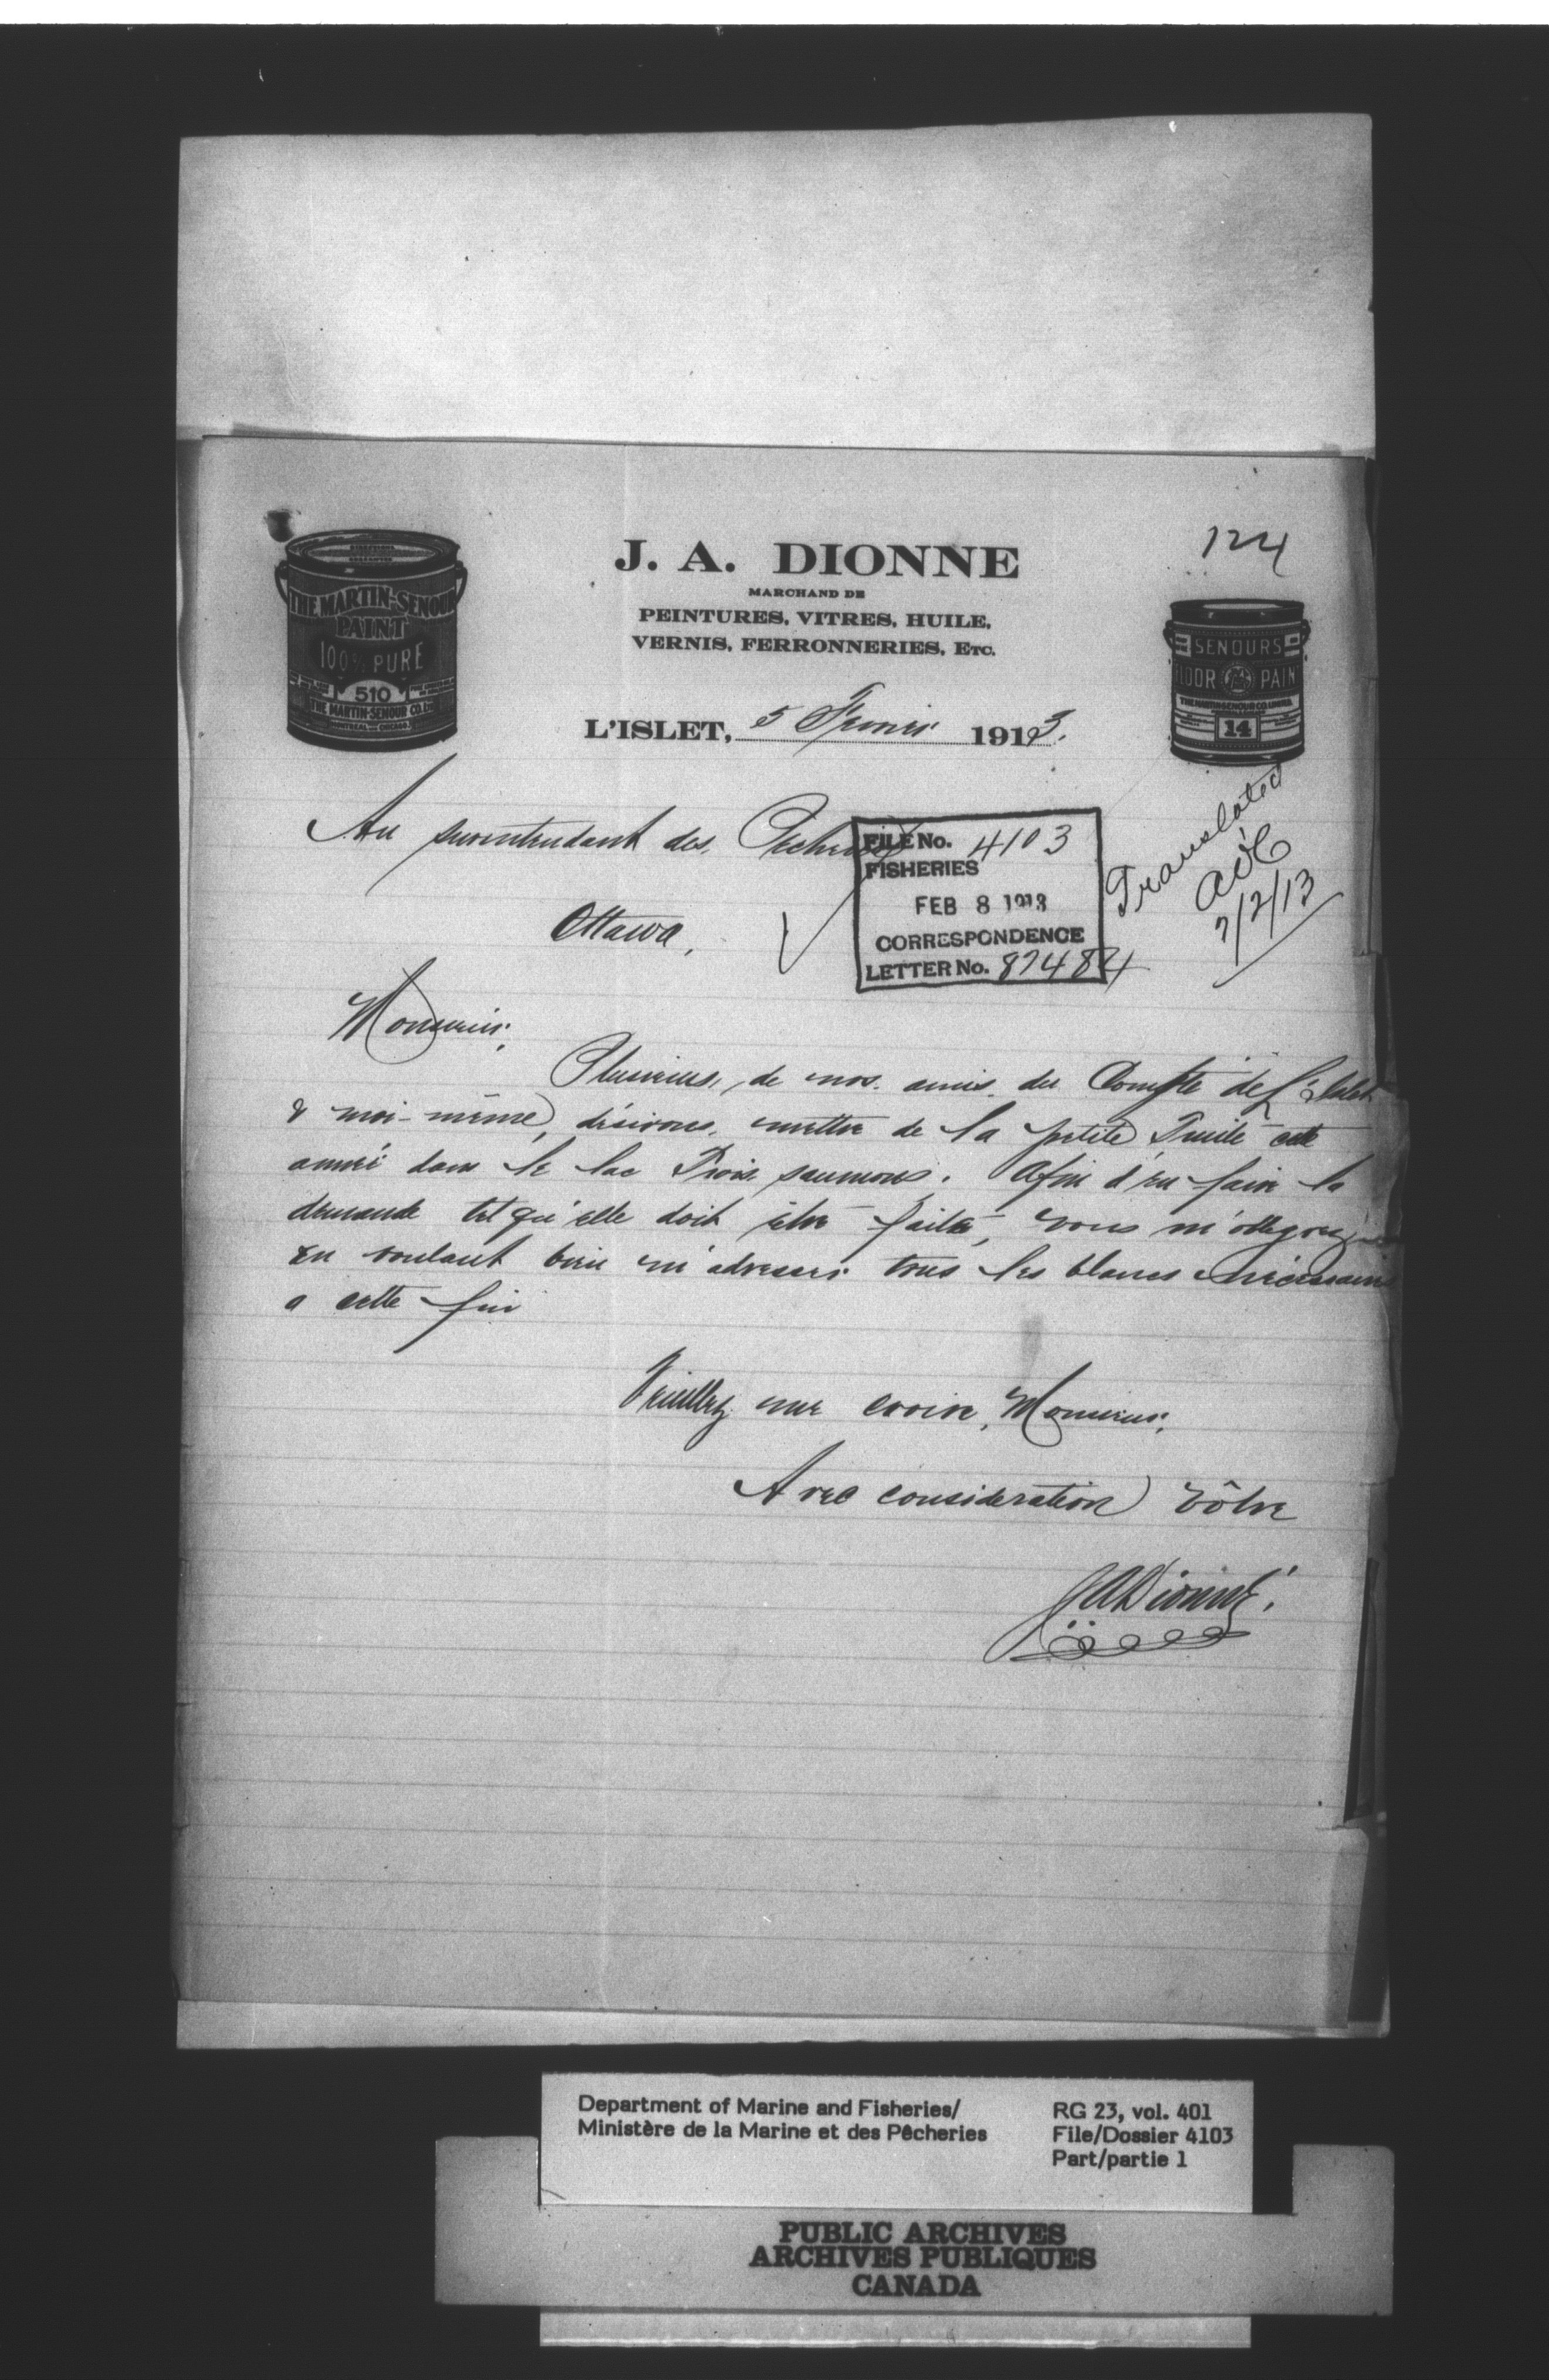 124
J. A. DIONNE
MARCHAND DE
PEINTURES, VITRES, HUILE,
VERNIS, FERRONNERIES, ETC.
THE MARTIN-SENOUR
PAINT
100% PURE
510
THE MARTIN-SENOUR CO. LTD
SENOURS
FLOOR PAINT
THE MARTIN-SENOUR CO. LIMITED
14
L'ISLET, 5 Fevrier 1913.
Au surintendant des Pecheries
Ottawa,
FILE No. 4103
FISHERIES
FEB 8 1913
CORRESPONDENCE
LETTER No. 87484
Translated
2/2/13
Monsieur,
Plusieurs, de nos amis du Compte de L'Islet
& moi-même, désirons, mettre de la petite Truite cette
année dans le lac Trois saumons. Afin d'en faire la
demande tel qu'elle doit être faite, vous m'obligerez
en voulant bien m'adresser tous les blancs nécessaires
a cette fin
Veuillez me croire, Monsieur,
Avec consideration vôtre
JADionne.
Department of Marine and Fisheries/
Ministère de la Marine et des Pêcheries
RG 23, vol. 401
File/Dossier 4103
Part/partie 1
PUBLIC ARCHIVES
ARCHIVES PUBLIQUES
CANADA